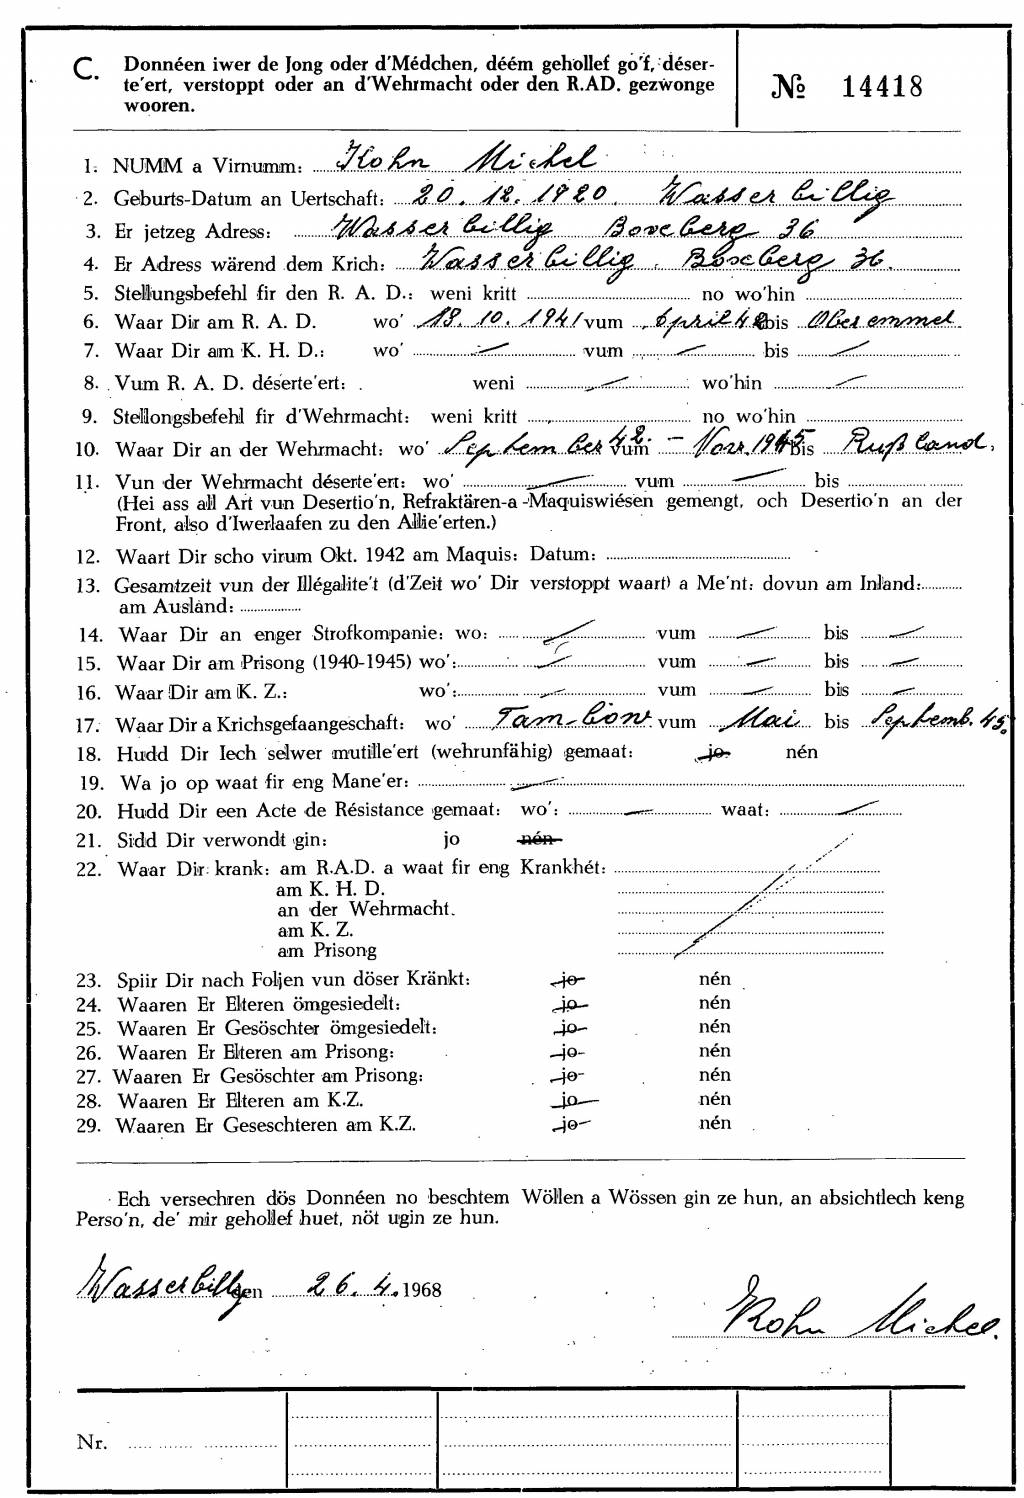 C. Donnéen iwer de Jong oder d'Médchen, déém gehollef go'f, déser-
te'ert, verstoppt oder an d'Wehrmacht oder den R.AD. gezwonge
wooren.
№ 14418
1. NUMM a Virnumm: Kohn Michel
2. Geburts-Datum an Uertschaft: 20. 12. 1920. Wasserbillig
3. Er jetzeg Adress: Wasserbillig Boxberg 36
4. Er Adress wärend dem Krich: Wasserbillig. Boxberg 36.
5. Stellungsbefehl fir den R. A. D.: weni kritt no wo'hin
6. Waar Dir am R. A. D. wo' 18. 10. 1941 vum April 42 bis Oberemmel
7. Waar Dir am K. H. D.: wo' — vum — bis —
8. Vum R. A. D. déserte'ert: weni — wo'hin —
9. Stellongsbefehl fir d'Wehrmacht: weni kritt no wo'hin
10. Waar Dir an der Wehrmacht: wo' September 42. vum – Nov. 1945 bis Rußland.
11. Vun der Wehrmacht déserte'ert: wo' — vum — bis
(Hei ass all Art vun Desertio'n, Refraktären-a-Maquiswiésen gemengt, och Desertio'n an der
Front, also d'Iwerlaafen zu den Allie'erten.)
12. Waart Dir scho virum Okt. 1942 am Maquis: Datum:
13. Gesamtzeit vun der Illégalite't (d'Zeit wo' Dir verstoppt waart) a Me'nt: dovun am Inland:
am Ausland:
14. Waar Dir an enger Strofkompanie: wo: — vum — bis —
15. Waar Dir am Prisong (1940-1945) wo': — vum — bis —
16. Waar Dir am K. Z.: wo': — vum — bis —
17. Waar Dir a Krichsgefaangeschaft: wo' Tambow vum Mai bis Septemb. 45.
18. Hudd Dir Iech selwer mutille'ert (wehrunfähig) gemaat: jo nén
19. Wa jo op waat fir eng Mane'er: —
20. Hudd Dir een Acte de Résistance gemaat: wo': — waat: —
21. Sidd Dir verwondt gin: jo nén
22. Waar Dir krank: am R.A.D. a waat fir eng Krankhét:
am K. H. D.
an der Wehrmacht.
am K. Z.
am Prisong
23. Spiir Dir nach Foljen vun döser Kränkt: jo nén
24. Waaren Er Elteren ömgesiedelt: jo nén
25. Waaren Er Gesöschter ömgesiedelt: jo nén
26. Waaren Er Elteren am Prisong: jo nén
27. Waaren Er Gesöschter am Prisong: jo nén
28. Waaren Er Elteren am K.Z. jo nén
29. Waaren Er Geseschteren am K.Z. jo nén
Ech versechren dös Donnéen no beschtem Wöllen a Wössen gin ze hun, an absichtlech keng
Perso'n, de' mir gehollef huet, nöt ugin ze hun.
Wasserbillig den 26. 4. 1968
Kohn Michel.
Nr.